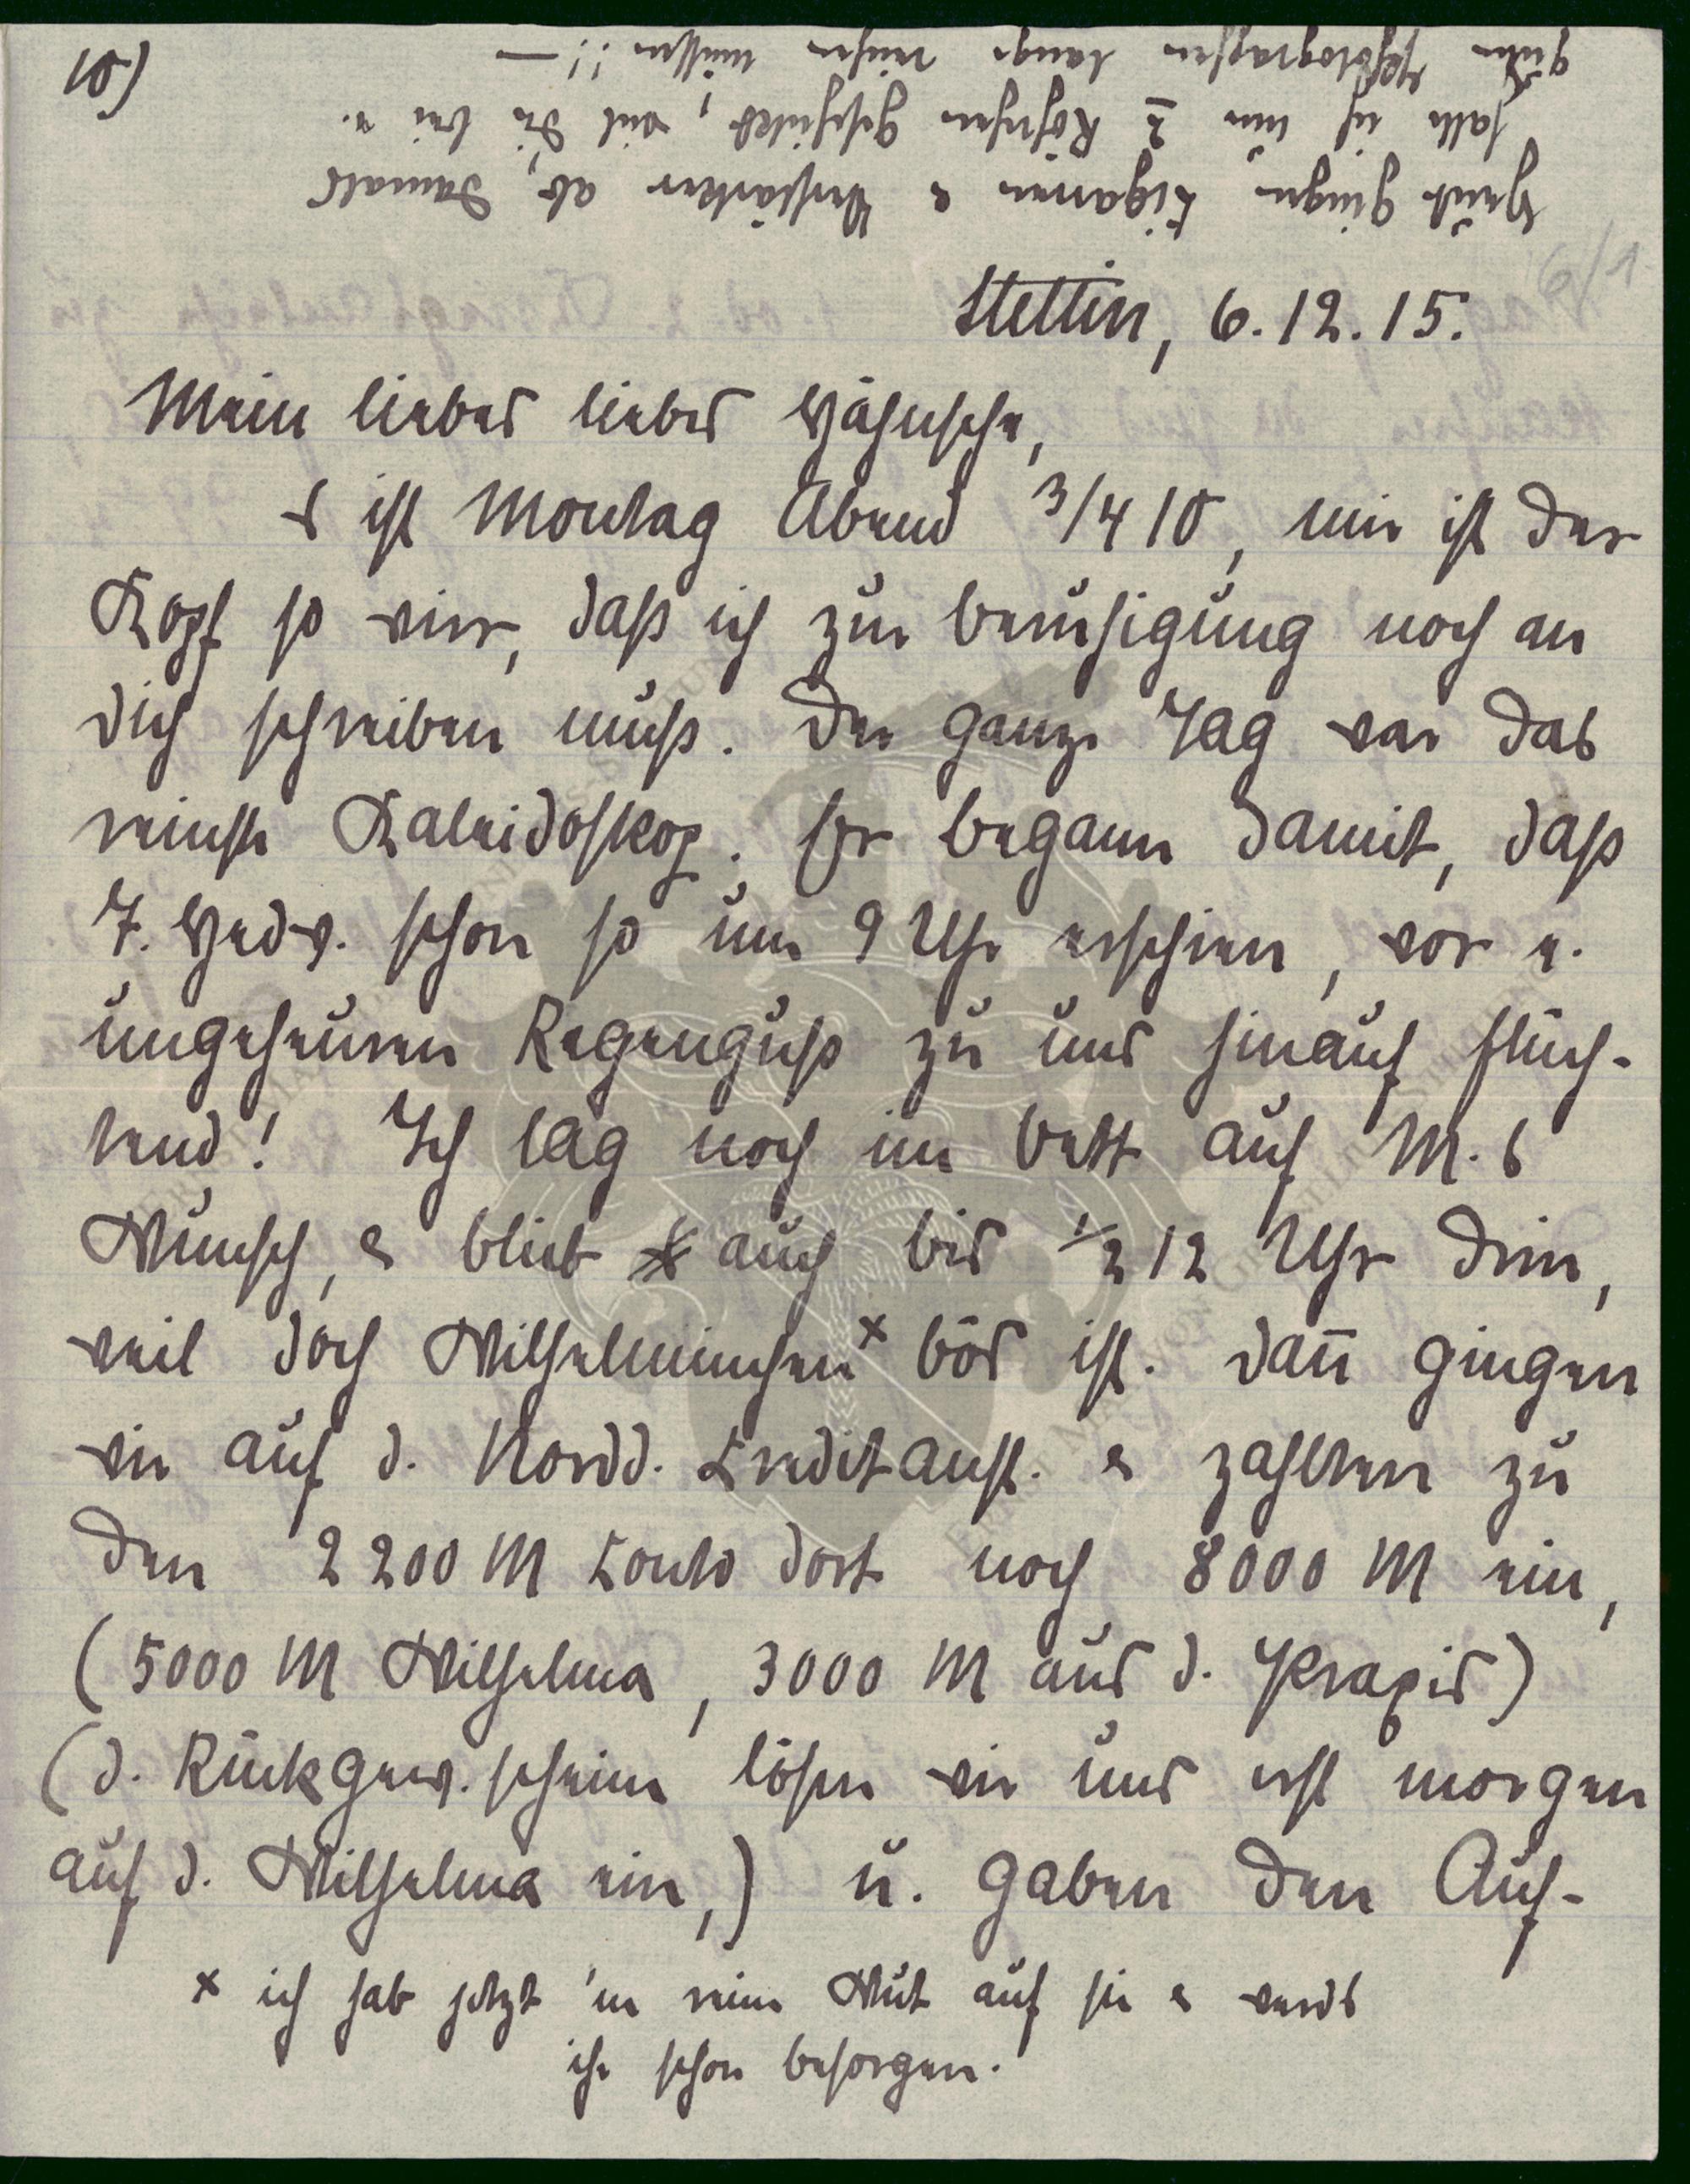 10)
Heut gingen Cigarren & Verstärker ab, damals
hatte ich nur 2 Röhrchen geschickt, weil die bei e.
guten Photographen lange reichen müssen!! —
6/1
Stettin, 6.12.15.
Mein liebes liebes Hähnsche,
s ist Montag Abend 3/4 10, mir ist der
Kopf so wirr, daß ich zur Beruhigung noch an
dich schreiben muß. Der ganze Tag war das
reinste Kaleidoskop. Er begann damit, daß
T. Hedw. schon so um 9 Uhr erschien, vor e.
ungeheuren Regenguß zu uns hinauf flüch-
tend! Ich lag noch im Bett auf M.s
Wunsch, & blieb auch bis 1/2 12 Uhr drin,
weil doch Wilhelminchen x bös ist. Dan̄ gingen
wir auf d. Nordd. Creditanst. & zahlten zu
den 2200 M Conto dort noch 8000 M ein,
(5000 M Wilhelma, 3000 M aus d. Praxis)
(d. Rückgew.scheine lösen wir uns erst morgen
auf d. Wilhelma ein,) u. gaben den Auf-
x ich hab jetzt 'ne reine Wut auf sie & werds
ihr schon besorgen.